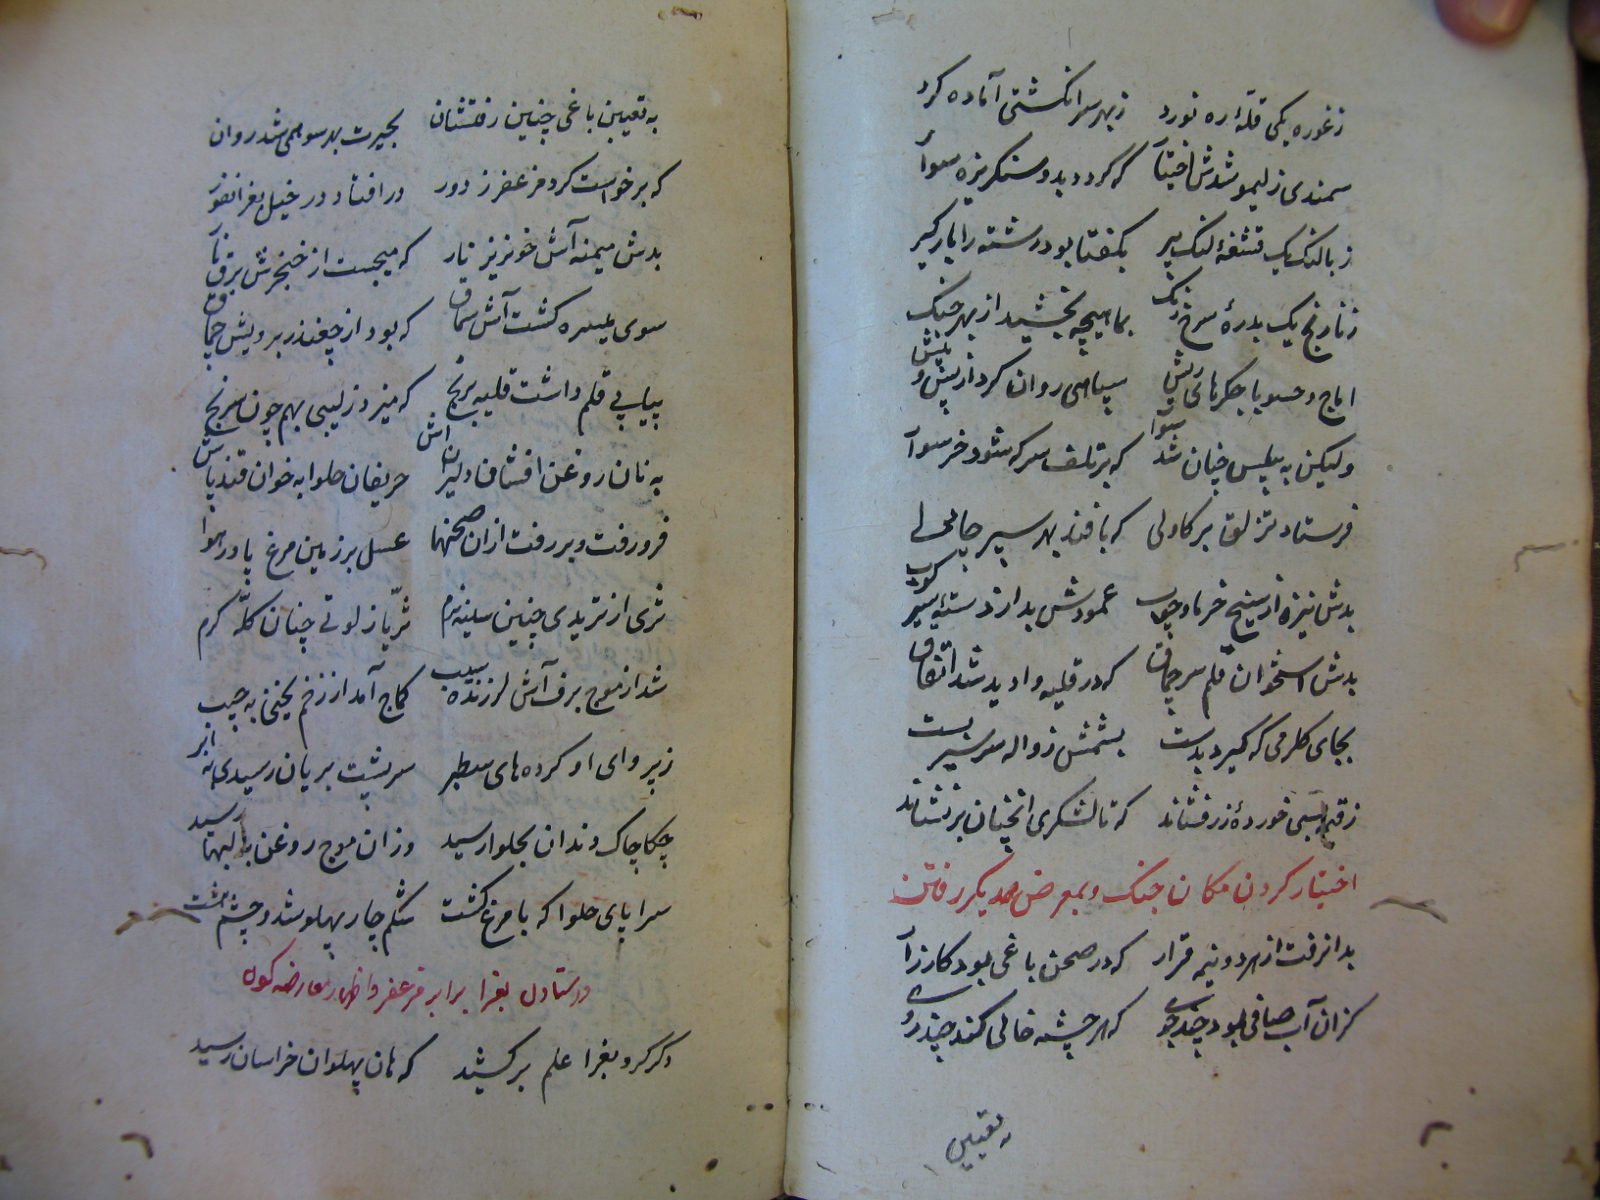 ز غوره یکی قلهٔ ره نورد ز بهر سرانگشتی آماده کرد
سمندی ز لیمو شدش اختیار که گردد بدو سنکریزه سوار
بکفتا بود رشته را بارکیر
ز نارنج یک بدرهٔ سرخ رنک بماهیچه بخشید از بهر جنک
اماج و حسو با جکرهای ریش سپاهی روان کرد از پیش و پیش
ولیکن به پیلس چنان شد سوار که بر تلف سرکه شود خر سوار
فرستاد تزلق بر کاولی که بافند بهر سپر چاملی
بدش نیزه از سیخ خرما و چوب عمودش بد از دستهٔ سیر کوب
بدش استخوان قلم سر چماق که در قلیه وادید شد اتفاق
بجای کلرمی که کیرد بدست بشمشش زواله سر شیر بست
ز قیمه بسی خوردهٔ زر فشاند که تا لشکری انچنان بر نشاند
اختیار کردن مکان جنک و بمعرض همدیکر رفتن
بدانرفت از هر دو نیم قرار که در صحن باغی بود کارزار
کزان آب صافی بود چند جوی که هر چشمه خالی کند چند روی
به تعیین
به تعیین باغی چنین رفتشان بحیرت بهر سو همی شد روان
که برخواست کرد مزعفر ز دور در افتاد در خیل بغرا نفور
بدش میمنه آش خونریز نار که میجست از خنجرش برق نار
سوی میسره کشت آش سماق که بود از چغندر برویش چماق
پیاپی قلم داشت قلیه برنج که میزد ز لیبی بهم چون سرنج
به نان روغن افشان دلیران آش حریفان حلوا به خوان قند پاش
فرو رفت و بر رفت از ان صحنها عسل بر زمین مرغ پا در هوا
ثری از تریدی چنین سینه نرم ثریا ز لوتی چنان کله کرم
شد از موج برف آش لرزنده سیب کماج آمد از زخم یخنی به جیب
ز پروای او کرده های سطبر سر پشت بریان رسیدی به ابر
چکاچاک دندان بحلوا رسید وزان موج روغن به لبها رسید
سراپای حلوا که با مرغ کشت شکم چار پهلو شد و چشم هشت
فرستادن بغرا برابر مزعفر و اظهار معارضه کردن
دکر کرد بغرا علم بر کشید که هان پهلوان خراسان رسید